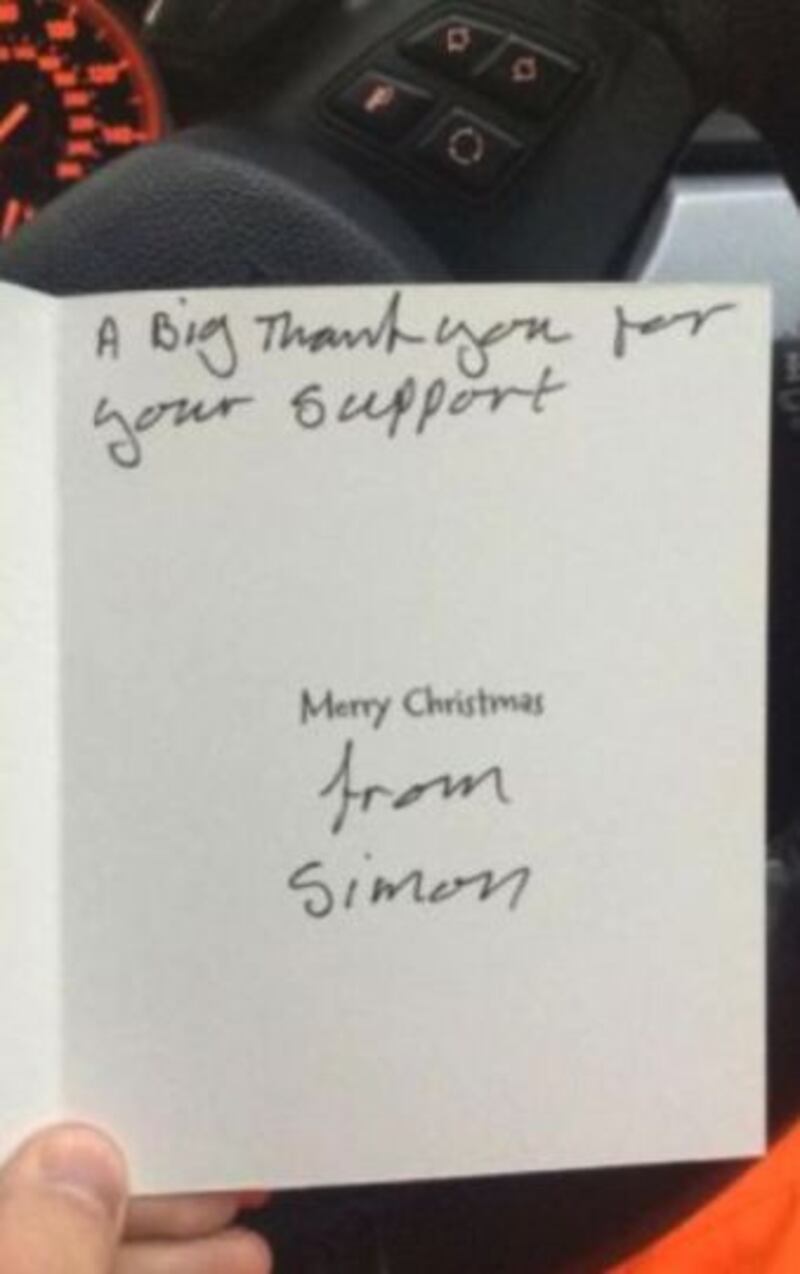 A Big Thank you for
your support
Merry Christmas
from
Simon